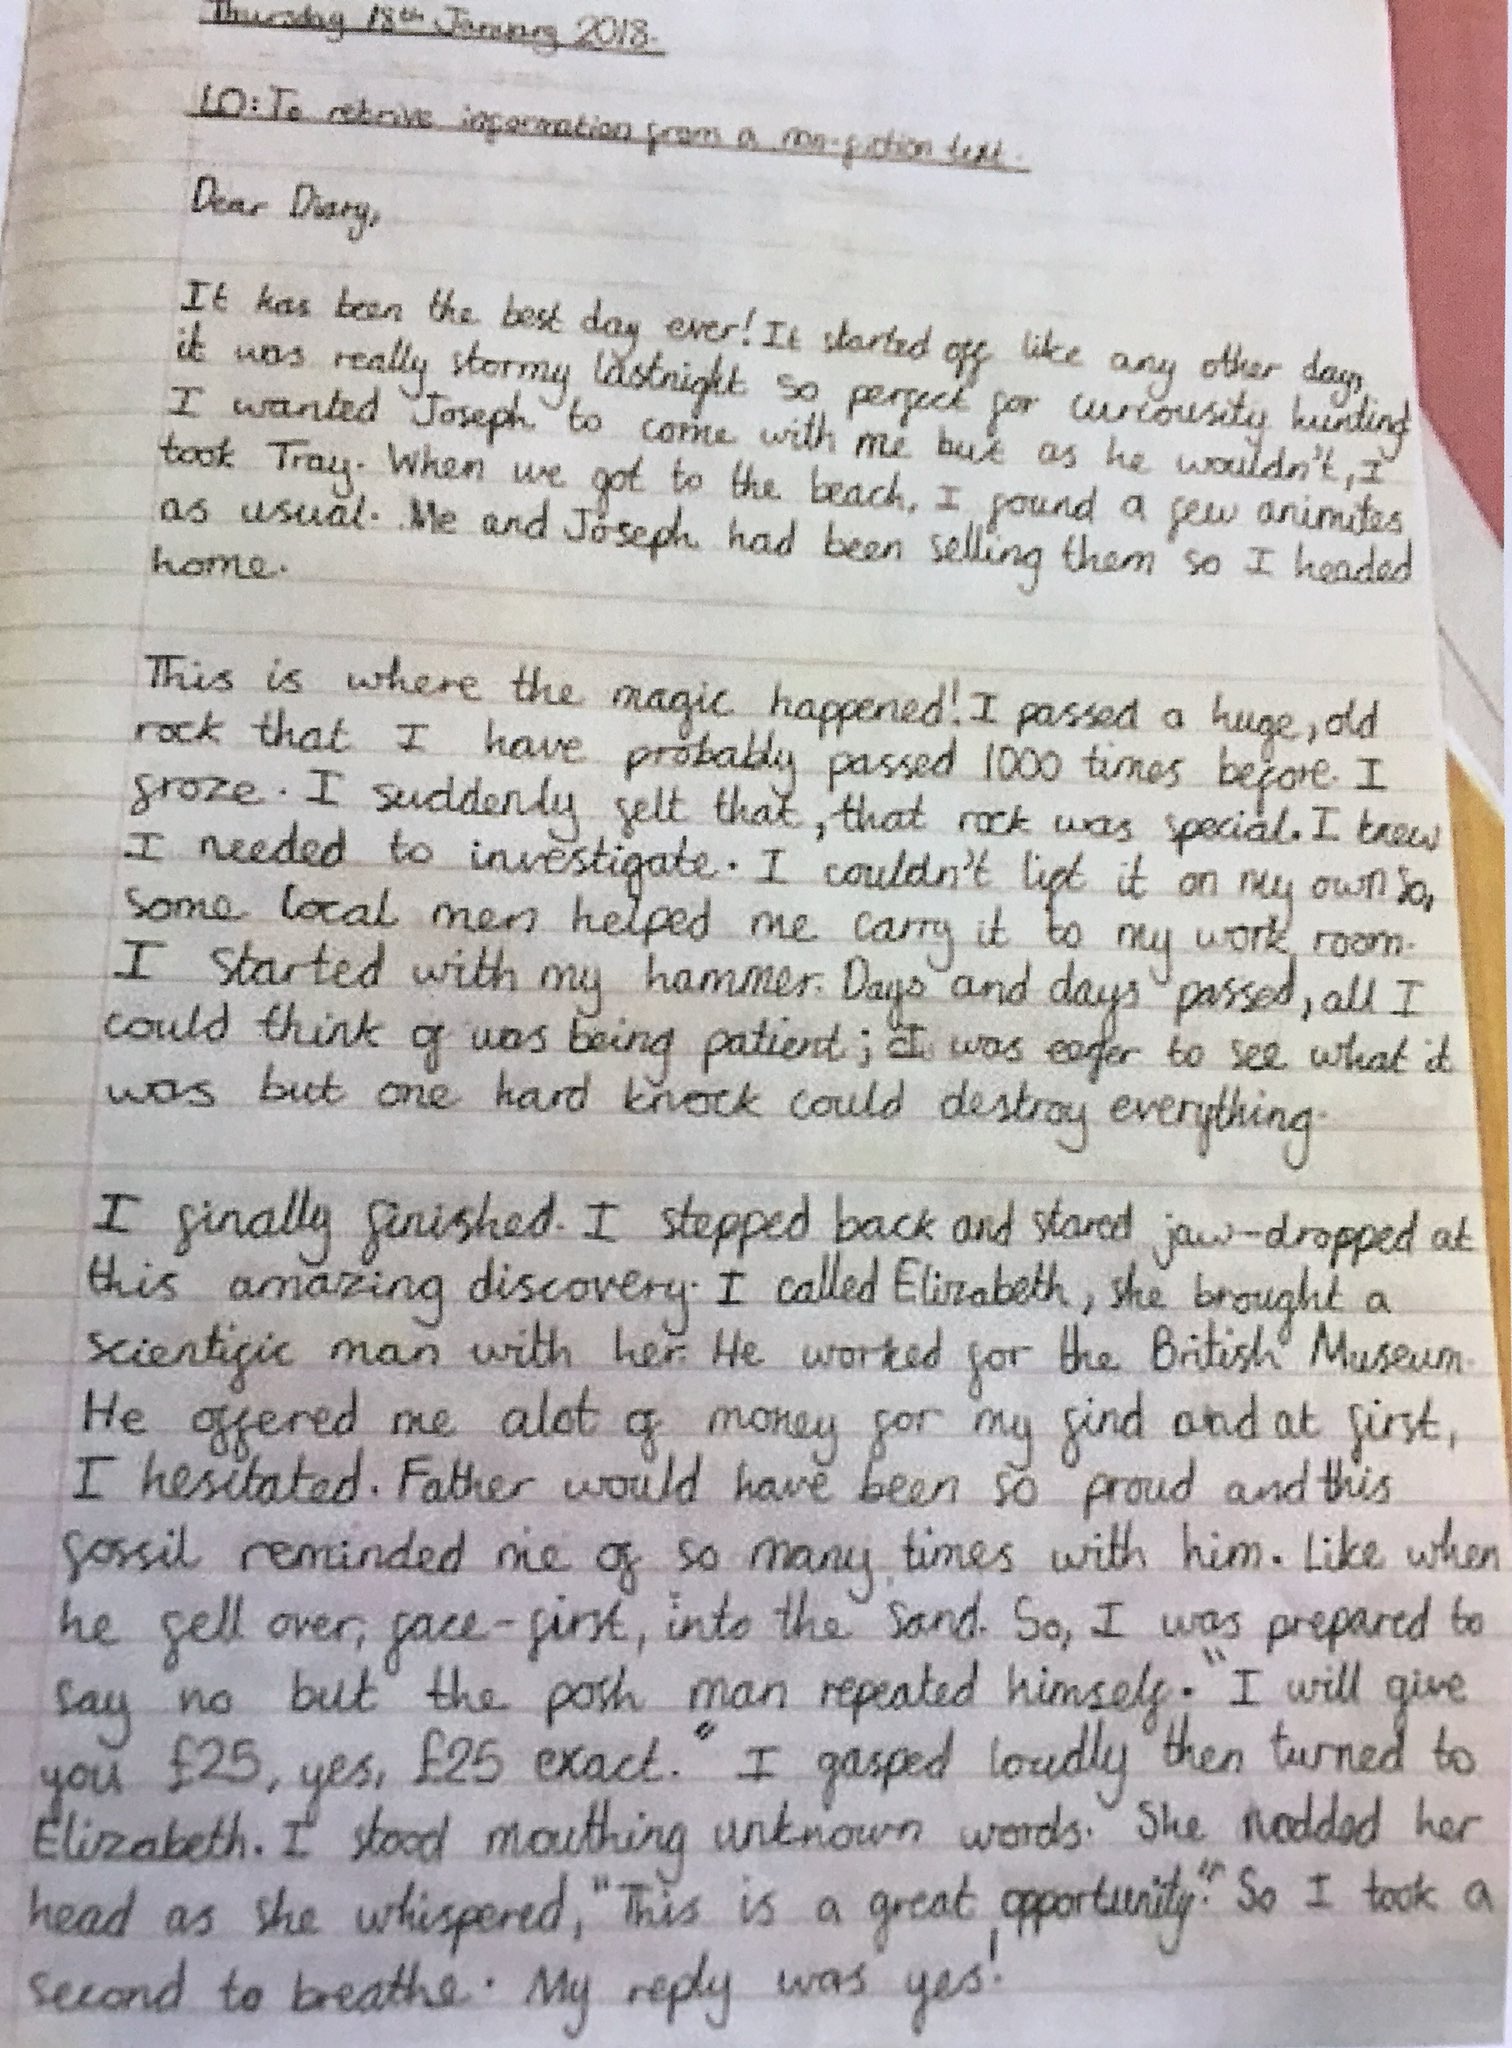 Thursday 18th January 2018.
LO: To retrive information from a non-fiction text.
Dear Diary,
It has been the best day ever! It started off like any other day,
it was really stormy lastnight so perfect for curiousity hunting
I wanted Joseph to come with me but as he wouldn't, I
took Tray. When we got to the beach, I found a few animites
as usual. Me and Joseph had been selling them so I headed
home.
This is where the magic happened! I passed a huge, old
rock that I have probably passed 1000 times before. I
froze. I suddenly felt that, that rock was special. I knew
I needed to investigate. I couldn't lift it on my own so,
some local men helped me carry it to my work room.
I started with my hammer. Days and days passed, all I
could think of was being patient; I was eager to see what it
was but one hard knock could destroy everything.
I finally finished. I stepped back and stared jaw-dropped at
this amazing discovery. I called Elizabeth, she brought a
scientific man with her. He worked for the British Museum.
He offered me alot of money for my find and at first,
I hesitated. Father would have been so proud and this
fossil reminded me of so many times with him. Like when
he fell over, face-first, into the sand. So, I was prepared to
say no but the posh man repeated himself. "I will give
you £25, yes, £25 exact." I gasped loudly then turned to
Elizabeth. I stood mouthing unknown words. She nodded her
head as she whispered, "This is a great opportunity." So I took a
second to breathe. My reply was yes!